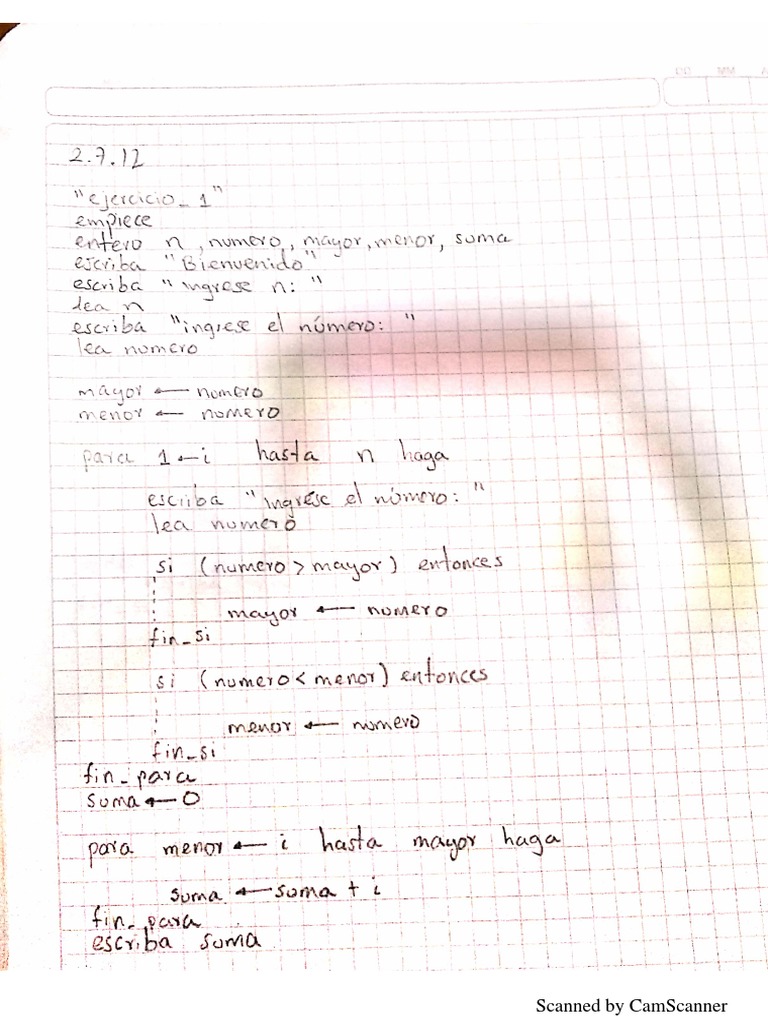 DD MM A
2.7.12
"ejercicio_1"
empiece
entero n, numero, mayor, menor, suma
escriba "Bienvenido"
escriba "ingrese n: "
lea n
escriba "ingrese el número: "
lea numero
mayor ← numero
menor ← numero
para 1 ← i hasta n haga
escriba "ingrese el número: "
lea numero
si (numero > mayor) entonces
mayor ← numero
fin_si
si (numero < menor) entonces
menor ← numero
fin_si
fin_para
suma ← 0
para menor ← i hasta mayor haga
suma ← suma + i
fin_para
escriba suma
Scanned by CamScanner